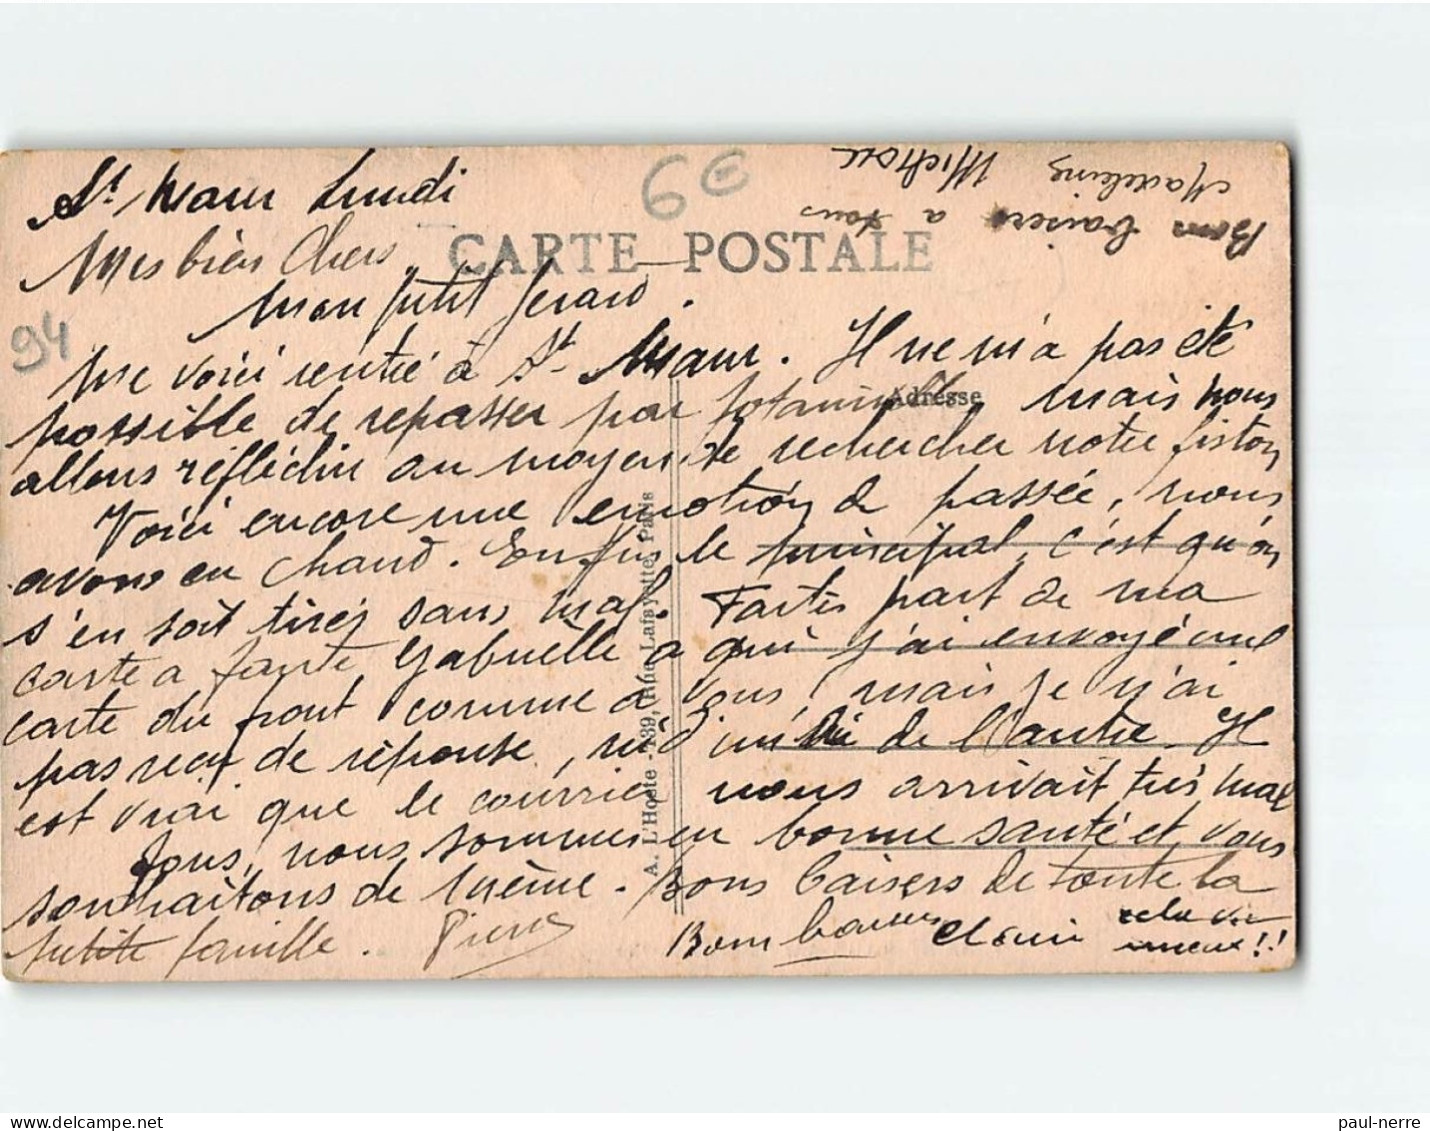 St Maur Lundi
Mes bien Chers
Mon petit Gérard.
6€
CARTE POSTALE
Bons baisers a
tous
Madeleine
94
Me voici rentré à St Maur. Il ne m'a pas été
Adresse
possible de repasser par mais nous
allons réfléchir au moyen de rechercher notre fiston
Voici encore une emotion de passée, nous
avons eu chaud. Enfin le principal, c'est qu'on
s'en soit tirés sans mal. Faites part de ma
carte a tante Gabrielle a qui j'ai envoyé une
carte du front comme a vous, mais je n'ai
pas reçu de réponse, ni d'un ni de l'autre. Il
est vrai que le courrier nous arrivait très mal
Tous, nous sommes en bonne santé et vous
souhaitons de même. Bons baisers de toute la
petite famille. Pierre
Bons baisers
cela va
mieux!!
A. L'Hoste - 139, Rue Lafayette, Paris
paul-nerre